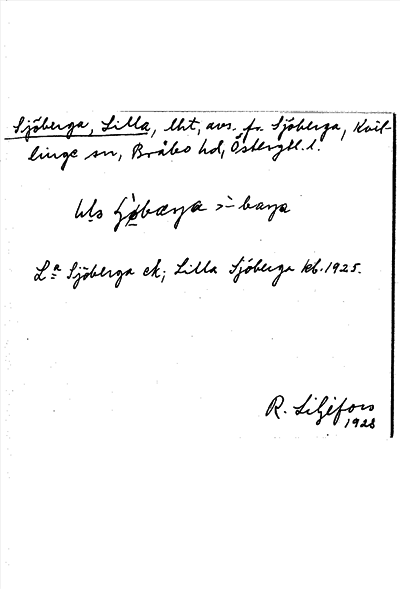 Sjöberga, Lilla, lht, avs. fr. Sjöberga, Kvil-
linge sn, Bråbo hd, Östergtl. l.
Lilla
La Sjöberga ek; Lilla Sjöberga kb. 1925.
R. Liljefors
1928